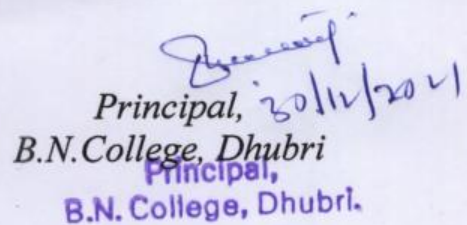 Principal, 30/12/2021
B.N.College, Dhubri
Principal,
B.N. College, Dhubri.